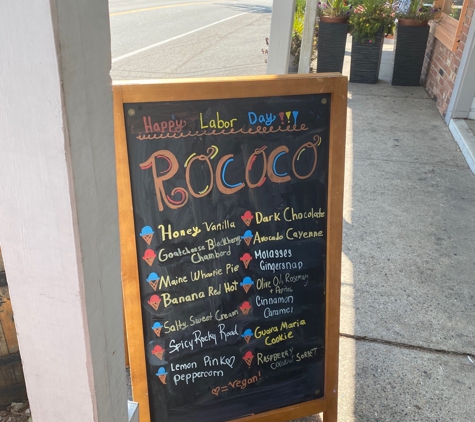 Happy Labor Day!!!
ROCOCO
Honey Vanilla
Goatcheese Blackberry
Chambord
Maine Whoopie Pie
Banana Red Hot
Salty Sweet Cream
Spicy Rocky Road
Lemon Pink
peppercorn
Dark Chocolate
Avocado Cayenne
Molasses
Gingersnap
Olive Oil, Rosemary
+
Cinnamon
Caramel
Guava Maria
Cookie
RASPBERRY
COCONUT SORBET
♡=vegan!